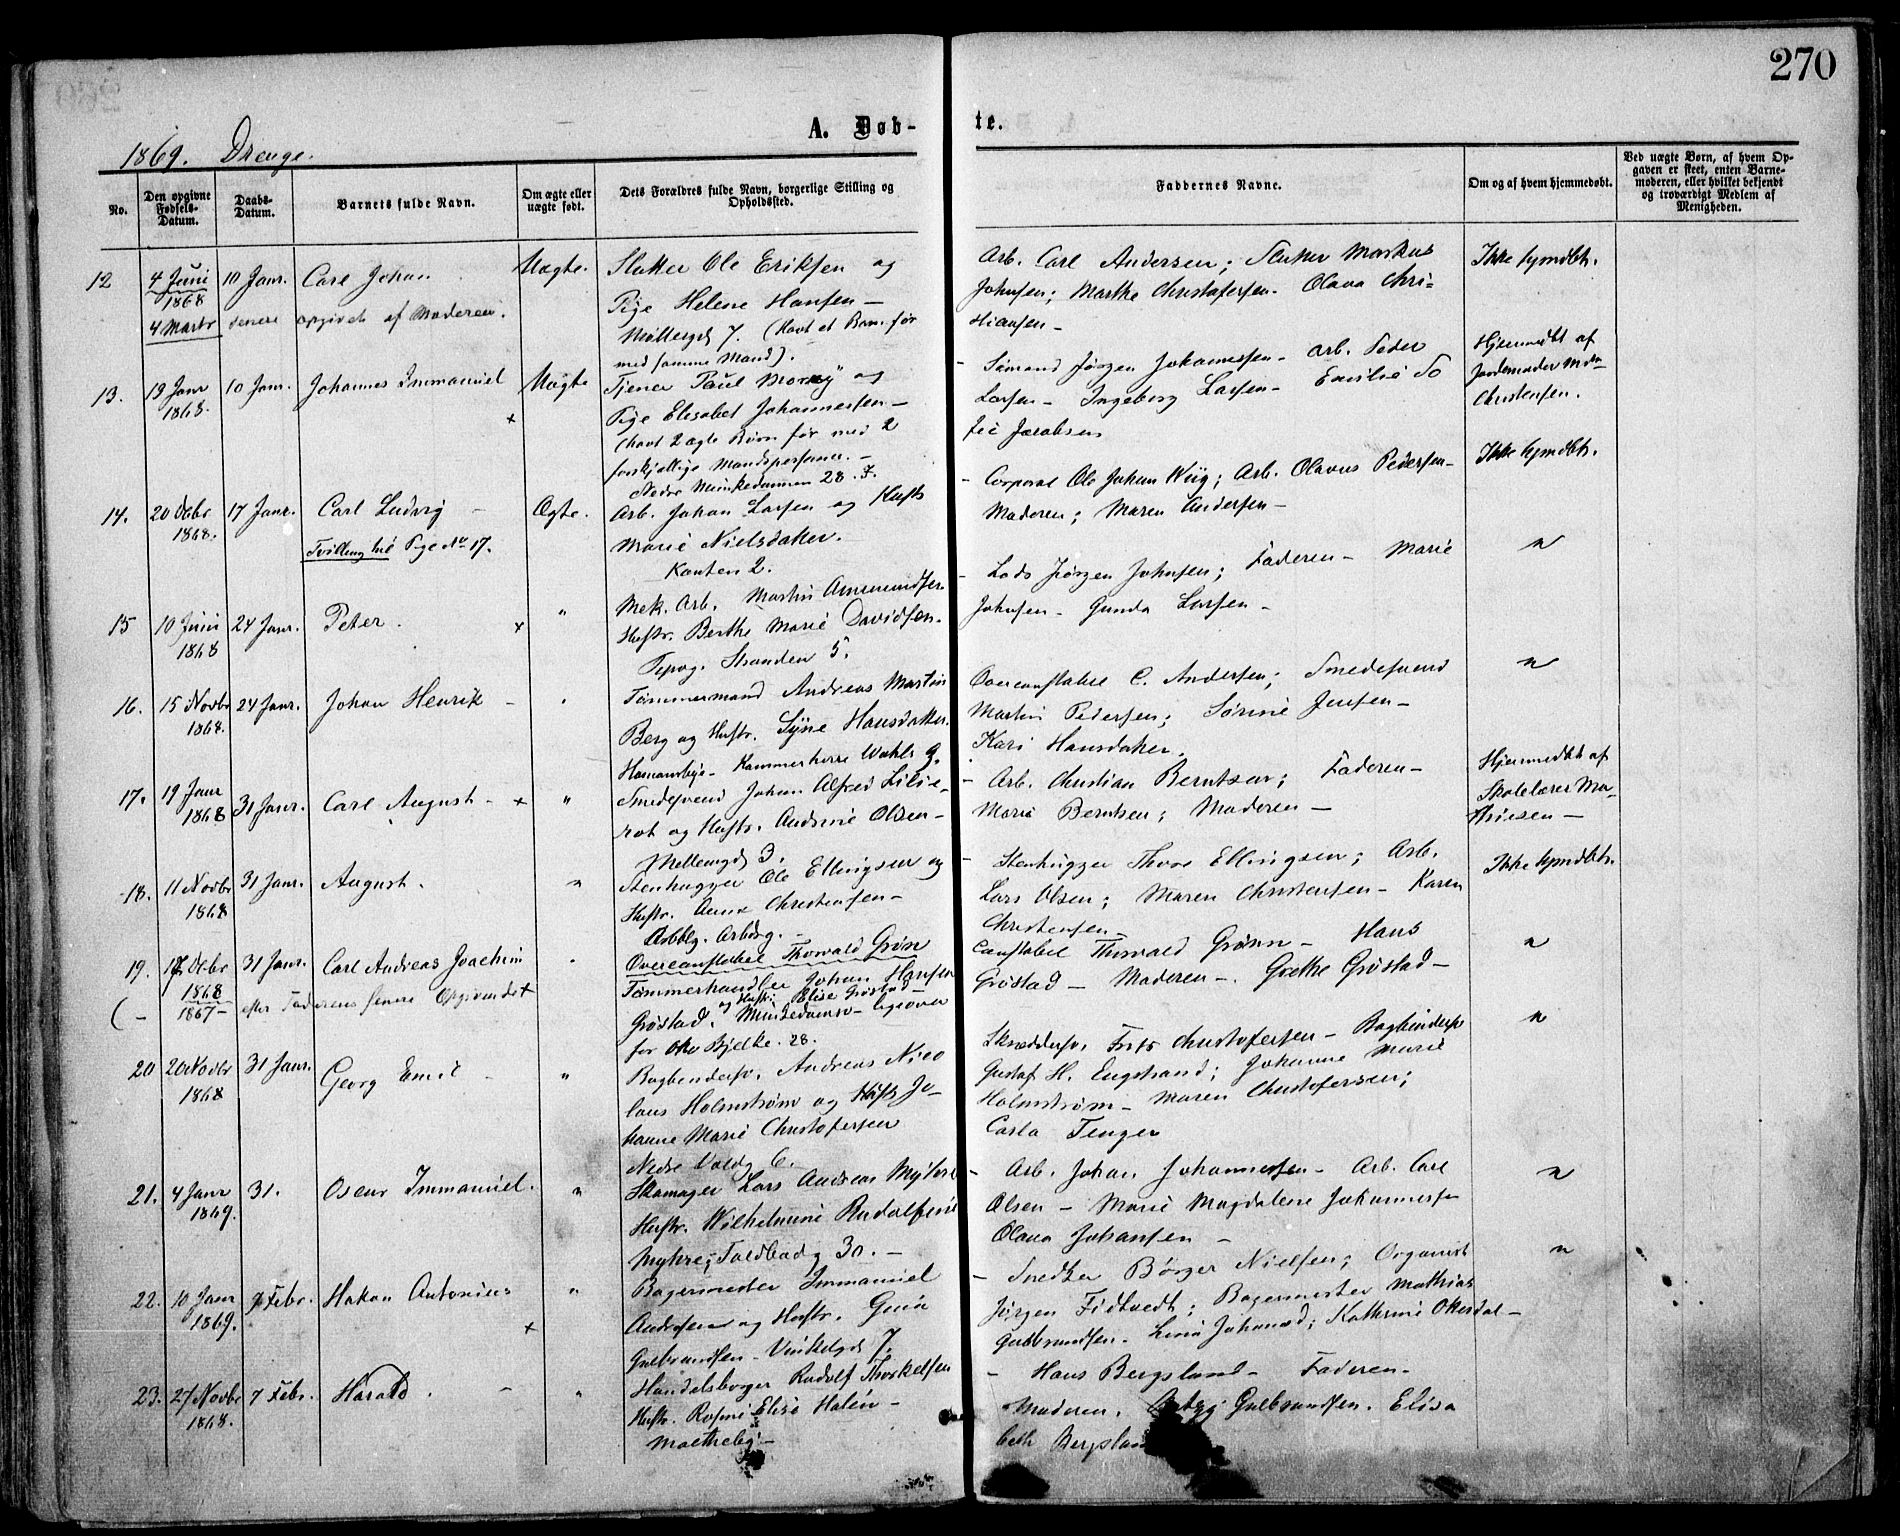 270
A. Døb-
te.
1869. Drenge.
No.
Den opgivne Fødsels-Datum.
Daabs-Datum.
Barnets fulde Navn.
Om ægte eller uægte født.
Dets Forældres fulde Navn, borgerlige Stilling og Opholdssted.
Faddernes Navne.
Om og af hvem hjemmedøbt.
Ved uægte Børn, af hvem Op-
gaven er skeet, enten Barne-
moderen, eller hvilket bekjendt
og troværdigt Medlem af
Menigheden.
12 4 Juni 1868 10 Janr. Carl Johan Uægte.
4 Marts senere opgivet af Moderen.
Slatter Ole Eriksen og
Pige Helene Hansen —
Møllergd 7. (Havt et Barn før
med samme Mand).
Arb. Carl Andersen; Markus
Johnsen; Marthe Christofersen - Olava Chri-
stiansen -
Ikke hjmdbt.
13. 19 Janr 1868. 10 Janr. Johannes Immanuel Uægte
Tjener Paul og
Pige Elisabet Johannessen —
(havt 2 ægte Børn før med 2
forskjellige Mandspersoner. —
Nedre Munkedammen 28. F.
- Sømand Jørgen Johannessen - Arb. Peder
Larsen - Ingeborg Larsen - Emilie So
fie Jacobsen
Hjemmedbt af
Jordemoder
Christensen.
14. 20 Debr 1868. 17 Janr. Carl Ludvig - Ægte.
Tvilling til Pige No 17.
Arb. Johan Larsen og Hustr
Marie Nielsdatter.
Kanten 2.
- Corporal Ole Johan Wiig; Arb. Olavus Pedersen -
Moderen; Maren Andersen -
Ikke hjmdbt.
15 10 Juni 1868 24 Janr. Peter. x "
Mek. Arb. Martin Ammundsen
Hustr. Berthe Marie Davidsen.
Pipvg. Stranden 5.
- Lods Jørgen Johnsen; Faderen - Marie
Johnsen - Gunda Larsen -
"
16. 15 Novbr 1868. 24 Janr. Johan Henrik - "
Tømmermand Andreas Martin
Berg og Hustr. Syne Hansdatter.
Homansbye - Kammerherre Wahls g.
Overconstabel C. Andersen; Smedesvend
Martin Pedersen; Sørine Jensen -
Kari Hansdatter.
"
17. 19 Janr 1868 31 Janr. Carl August - x "
Smedesvend Johan Alfred Lilie-
rot og Hustr. Andrine Olsen -
Mellemgd 3.
- Arb. Christian Berntsen; Faderen -
Marie Berntsen; Moderen -
Hjemmedbt af
Skolelærer Ma-
thiesen -
18. 11 Novbr 1868 31 Janr. August. "
Stenhugger Ole Ellingsen og
Hustr. Anne Christensen -
Arbbg. Arbdsg. -
- Stenhugger Thor Ellingsen; Arb.
Lars Olsen; Maren Christensen - Karen
Christensen -
Ikke hjmdbt.
19. 17 Debr 1868 31 Janr. Carl Andreas Joachim "
( - 1867 - efter Faderens senere Opgivende x
Overconstabel Thorvald Grøn
Tømmerhandler Johan Hansen
Grøstad, og Hustr. Elise Grøstad -
Munkedamsv - ligeover
for Oko Bjelke. 28.
Constabel Thorvald Grønn - Hans
Grøstad - Moderen - Grethe Grøstad -
"
20 20 Novbr 1868 31 Janr. Georg Emil - "
Bogbindersv. Andreas Nico
laus Holmstrøm og Hustr Jo-
hanne Marie Christofersen
Nedre Voldg 6.
Skræddersv. Frits Christofersen - Bogbindersv
Gustaf H. Engstrand; Johanne Marie
Holmstrøm - Maren Christofersen;
Carla Tenger
"
21. 4 Janr 1869. 31. Oscar Immanuel. "
Skomager Lars Andreas Myhre
Hustr. Wilhelmine Rudolfine
Myhre; Toldbodg 30. -
- Arb. Johan Johannessen - Arb. Carl
Olsen - Marie Magdalene Johannessen
Olava Johansen -
"
22. 10 Janr 1869. 7 Febr. Hakon Antonius x "
Bagermester Immanuel
Andersen og Hustr. Gina
Gulbrandsen - Vinkelgd 7.
- Snedker Børger Nielsen; Organist
Jørgen Fidtvedt; Bagermester Mathias
Gulbrandsen - Lina ; Kathrine -
"
23. 27 Novbr 1868. 7 Febr. Harald. - "
Handelsborger Rudolf Thorkelsen
Hustr. Rosine Elise Halén -
- Hans Bergsland - Faderen -
Moderen. Gulbrandsen. Elisa
beth Bergsland